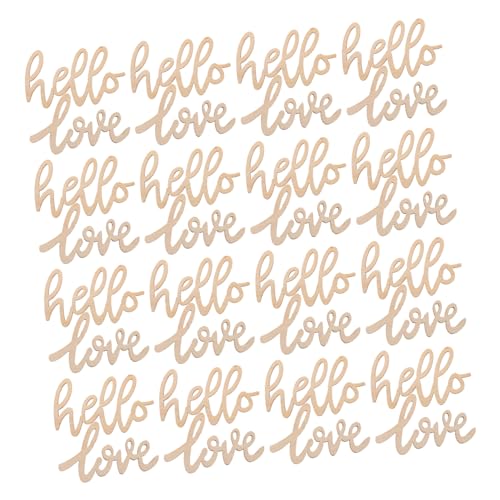 hello hello hello hello
love love love love
hello hello hello hello
love love love love
hello hello hello hello
love love love love
hello hello hello hello
love love love love